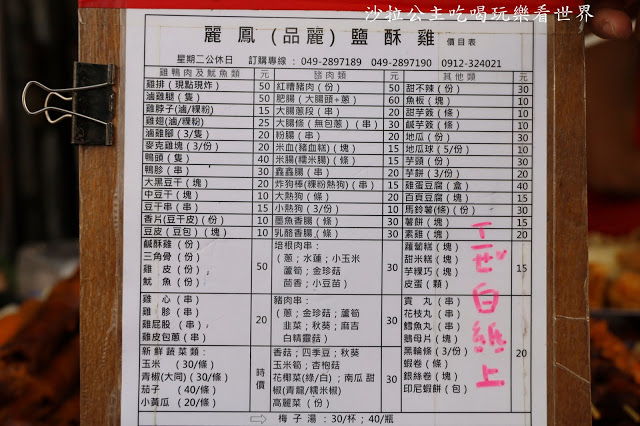 沙拉公主吃喝玩樂看世界
麗鳳(品麗)鹽酥雞 價目表
星期二公休日 訂購專線：049-2897189 049-2897190 0912-324021
雞鴨肉及魷魚類 元 豬肉類 元 其他類 元
雞排(現點現炸) 50 紅糟豬肉(份) 50 甜不辣(份) 30
滷雞腿(隻) 50 肥腸(大腸頭+蔥) 60 魚板(塊) 10
雞脖子(滷/粿粉) 15 大腸蔥段(串) 20 甜芋簽(條) 10
雞翅(滷/粿粉) 25 大腸條(無包蔥)(串) 30 鹹芋簽(條) 10
滷雞腳(3/隻) 20 粉腸(串) 20 地瓜(份) 30
麥克雞塊(3/份) 20 米血(豬血糕)(塊) 15 地瓜球(5/份) 10
鴨頭(隻) 40 米腸(糯米腸)(條) 15 芋頭(份) 30
鴨胗(串) 30 鑫鑫腸(串) 20 芋餅(3/份) 20
大黑豆干(塊) 20 炸狗棒(粿粉熱狗)(串) 15 雞蛋豆腐(盒) 40
中豆干(塊) 10 大熱狗(條) 20 百頁豆腐(塊) 20
豆干串(串) 15 小熱狗(3/份) 10 馬鈴薯條(份) 30
香片(豆干皮)(份) 10 墨魚香腸(條) 30 薯餅(塊) 15
豆皮(豆包)(塊) 10 乳酪香腸(條) 30 素雞(塊) 20
鹹酥雞(份)
三角骨(份)
雞皮(份)
魷魚(份)
50
培根肉串：
(蔥；水蓮；小玉米
蘆筍；金珍菇
茴香；小豆苗)
30
蘿蔔糕(塊)
甜米糕(塊)
芋粿巧(塊)
皮蛋(顆)
15
雞心(串)
雞胗(串)
雞屁股(串)
雞皮包蔥(串)
20
豬肉串：
(蔥；金珍菇；蘆筍
韭菜；秋葵；麻吉
白精靈菇)
30
貢丸(串)
花枝丸(串)
鱈魚丸(串)
鵝母片(塊)
黑輪條(3/份)
蝦卷(條)
銀絲卷(塊)
印尼蝦餅(包)
20
新鮮蔬菜類：
玉米(30/條)
青椒(大同)(30/條)
茄子(40/條)
小黃瓜(20/條)
時價
香菇；四季豆；秋葵
玉米筍；杏枹菇
花椰菜(綠/白)；南瓜 甜
椒(青龍/糯米椒)
高麗菜(份)
30
梅子湯：30/杯；40/瓶
白紙上